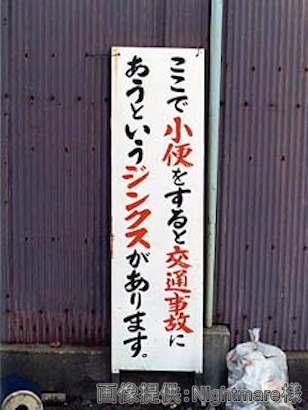 ここで小便をすると交通事故に
あうというジンクスがあります。
画像提供:Nightmare様